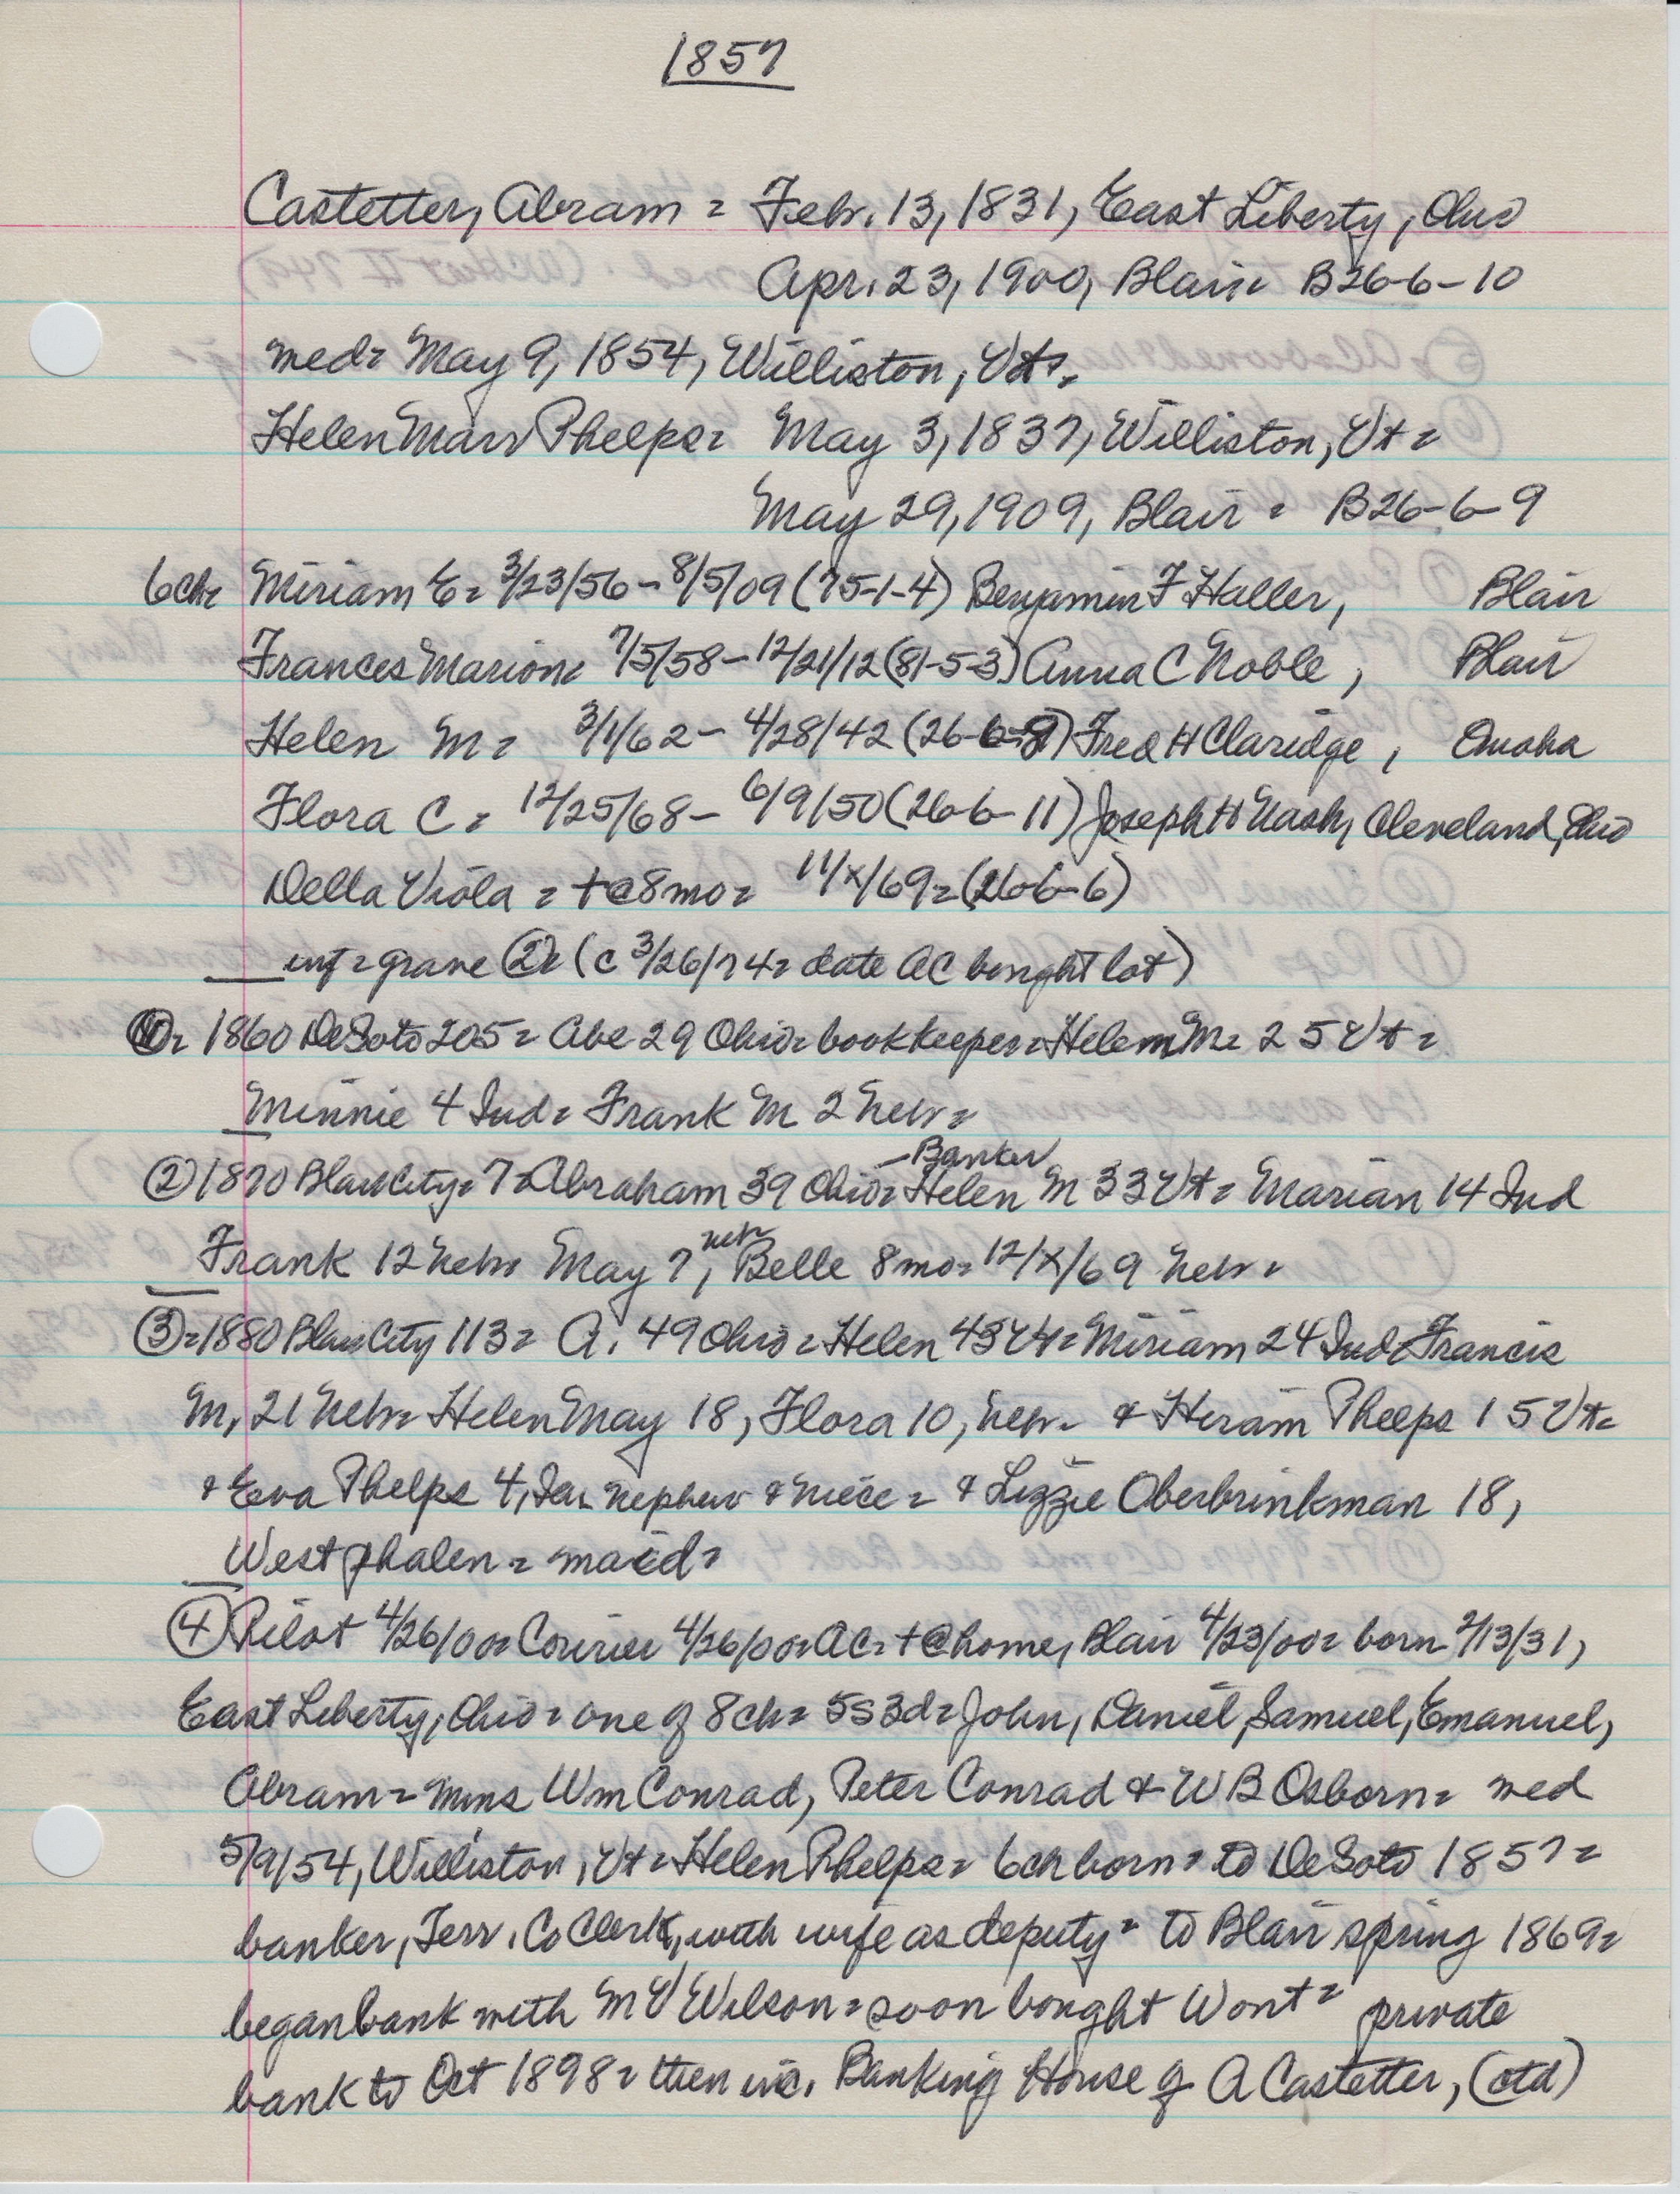 1857
Castetter, Abram = Febr. 13, 1831, East Liberty, Ohio
Apr. 23, 1900, Blair = B26-6-10
med = May 9, 1854, Williston, Vt. =
Helen Marr Phelps = May 3, 1837, Williston, Vt =
May 29, 1909, Blair = B26-6-9
6ch = Miriam E = 3/23/56 - 8/5/09 (75-1-4) Benjamin F Haller, Blair
Frances Marion = 7/5/58 - 12/21/12 (81-5-3) Anna C Noble, Blair
Helen M = 3/1/62 - 4/28/42 (26-6-8) Fred H Claridge, Omaha
Flora C = 12/25/68 - 6/9/50 (26-6-11) Joseph H Nash, Cleveland, Ohio
Della Viola = + @ 8 mo = 11/x/69 = (26-6-6)
inf = grave 2 = (c 3/26/74 = date AC bought lot)
1 = 1860 DeSoto 205 = Abe 29 Ohio = bookkeeper = Helen M = 25 Vt =
Minnie 4 Ind = Frank M 2 Nebr =
2 1870 Blair City = 7 = Abraham 39 Ohio = - Banker Helen M 33 Vt = Marian 14 Ind
Frank 12 Nebr = May 7, nebr Belle 8 mo = 12/x/69 Nebr =
3 = 1880 Blair City 113 = A. 49 Ohio = Helen 43 Vt = Miriam 24 Ind = Francis
M, 21 Nebr = Helen May 18, Flora 10, Nebr = & Hiram Phelps 15 Vt =
& Eva Phelps 4, Ia = nephew & niece = & Lizzie Oberbrinkman 18,
Westphalen = maid =
4 Pilot 4/26/00 = Courier 4/26/00 = AC = + @ home, Blair 4/23/00 = born 2/13/31,
East Liberty, Ohio = one of 8 ch = 5s 3d = John, Daniel, Samuel, Emanuel,
Abram = Mmes Wm Conrad, Peter Conrad & W B Osborn = med
5/9/54, Williston, Vt = Helen Phelps = 6ch born = to DeSoto 1857 =
banker, Terr. Co Clerk, with wife as deputy = to Blair spring 1869 =
began bank with M V Wilson = soon bought W out = private
bank to Oct 1898 = then inc. Banking House of A Castetter, (ctd)